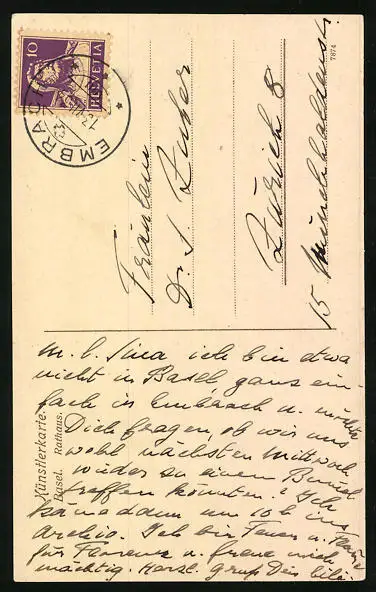 10
HELVETIA
EMBRACH
7874
Fräulein
Dr. S.
Zürich 8
15
Künstlerkarte.
Basel. Rathaus.
M. l. Sina ich bin etwa
nicht in Basel, ganz ein-
fach in Embrach u. möchte
Dich fragen, ob wir uns
wohl nächsten Mittwoch
wieder zu einem
treffen könnten? Ich
käme dann um 10 h ins
Archiv. Ich bin Feuer u. Flamme
für Florenz u. freue mich
mächtig. Herzl. Gruss Dein